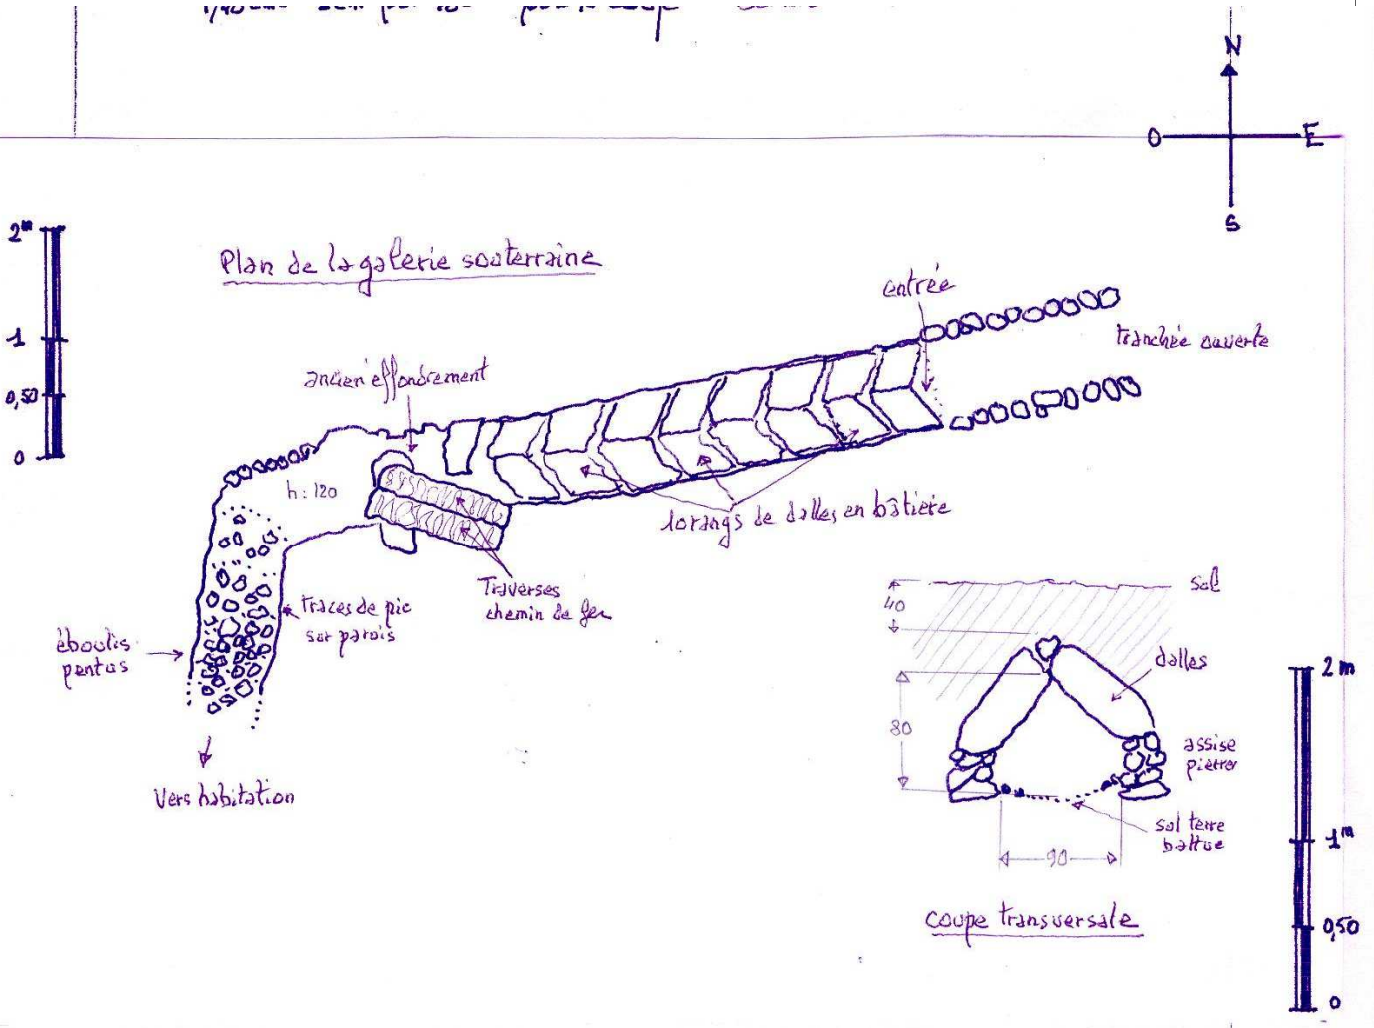 N
O E
S
2m
1
0,50
0
Plan de la galerie souterraine
entrée
tranchée ouverte
ancien effondrement
h: 120
10 rangs de dalles en bâtière
Traverses
chemin de fer
traces de pic
sur parois
éboulis
pentus
Vers habitation
sol
40
dalles
80
assise
pierres
sol terre
battue
90
coupe transversale
2m
1m
0,50
0